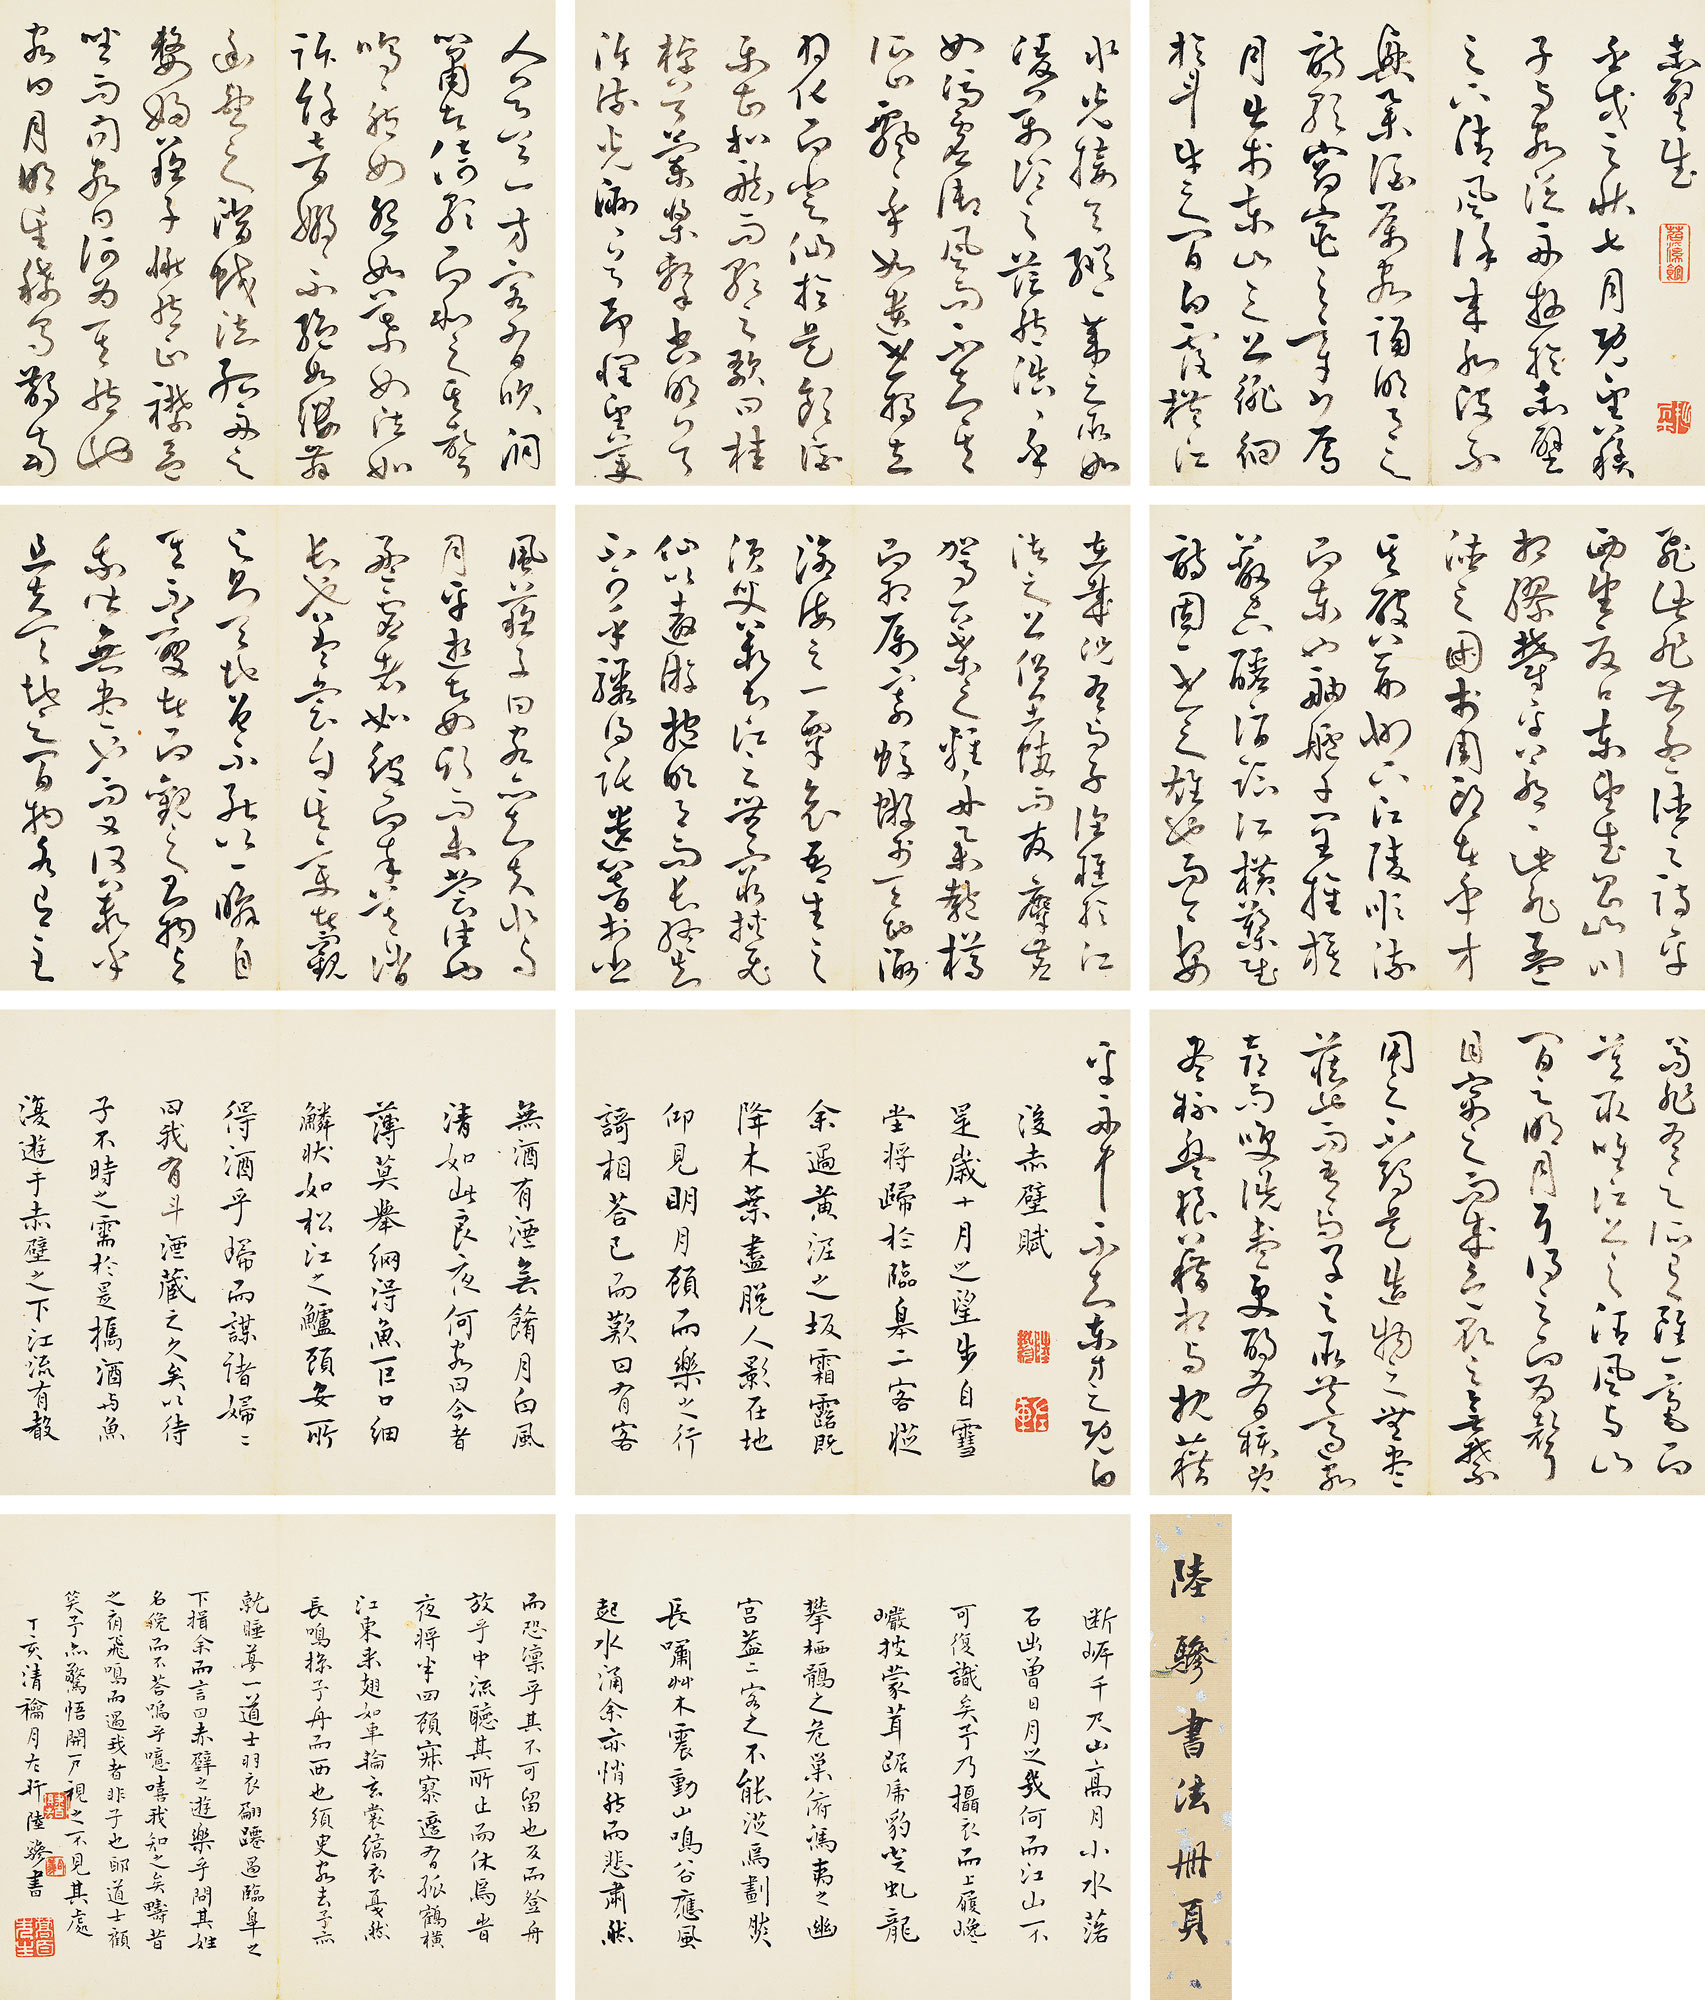 赤壁賦
壬戌之秋七月既望蘇
子與客泛舟遊於赤壁
之下清風徐來水波不
興舉酒屬客誦明月之
詩歌窈窕之章少焉
月出於東山之上徘徊
於斗牛之間白露橫江
水光接天縱一葦之所如
凌萬頃之茫然浩浩乎
如馮虛御風而不知其
所止飄飄乎如遺世獨立
羽化而登仙於是飲酒
樂甚扣舷而歌之歌曰桂
棹兮蘭槳擊空明兮
泝流光渺渺兮予懷望美
人兮天一方客有吹洞
簫者倚歌而和之其聲
嗚嗚然如怨如慕如泣如
訴餘音嫋嫋不絕如縷舞
幽壑之潛蛟泣孤舟之
嫠婦蘇子愀然正襟危
坐而問客曰何為其然也
客曰月明星稀烏鵲南
飛此非曹孟德之詩乎
西望夏口東望武昌山川
相繆鬱乎蒼蒼此非孟
德之困於周郎者乎方
其破荊州下江陵順流
而東也舳艫千里旌旗
蔽空釃酒臨江橫槊賦
詩固一世之雄也而今安
在哉況吾與子漁樵於江
渚之上侶魚蝦而友麋鹿
駕一葉之輕舟舉匏樽
而相屬寄蜉蝣於天地渺
滄海之一粟哀吾生之
須臾羨長江之無窮挾飛
仙以遨遊抱明月而長終知
不可乎驟得託遺響於悲
風蘇子曰客亦知夫水與
月乎逝者如斯而未嘗往也
盈虛者如彼而卒莫消
長也蓋嘗自其變者觀
之則天地曾不能以一瞬自
其不變者而觀之則物與
我皆無盡也而又何羨乎
且夫天地之間物各有主
苟非吾之所有雖一毫而
莫取唯江上之清風與山
間之明月耳得之而為聲
目寓之而成色取之無禁
用之不竭是造物之無盡
藏也而吾與子之所共適客
喜而笑洗盞更酌肴核既
盡杯盤狼藉相與枕藉
乎舟中不知東方之既白
後赤壁賦
是歲十月之望步自雪
堂將歸於臨皋二客從
余過黃泥之坂霜露既
降木葉盡脫人影在地
仰見明月顧而樂之行
謌相答已而歎曰有客
無酒有酒無餚月白風
清如此良夜何客曰今者
薄莫舉網得魚巨口細
鱗狀如松江之鱸顧安所
得酒乎歸而謀諸婦婦
曰我有斗酒藏之久矣以待
子不時之需於是攜酒與魚
復遊于赤壁之下江流有聲
斷岸千尺山高月小水落
石出曾日月之幾何而江山不
可復識矣予乃攝衣而上履巉
巖披蒙茸踞虎豹登虬龍
攀栖鶻之危巢俯馮夷之幽
宮蓋二客之不能從焉劃然
長嘯草木震動山鳴谷應風
起水涌余亦悄然而悲肅然
而恐凜乎其不可留也反而登舟
放乎中流聽其所止而休焉時
夜將半四顧寂寥適有孤鶴橫
江東來翅如車輪玄裳縞衣戛然
長鳴掠予舟而西也須臾客去予亦
就睡夢一道士羽衣翩躚過臨皋之
下揖余而言曰赤壁之遊樂乎問其姓
名俛而不答嗚乎噫嘻我知之矣疇昔
之夜飛鳴而過我者非子也耶道士顧
笑予亦驚悟開戶視之不見其處
丁亥清龢月左軒陸驂書
陸驂書法冊頁